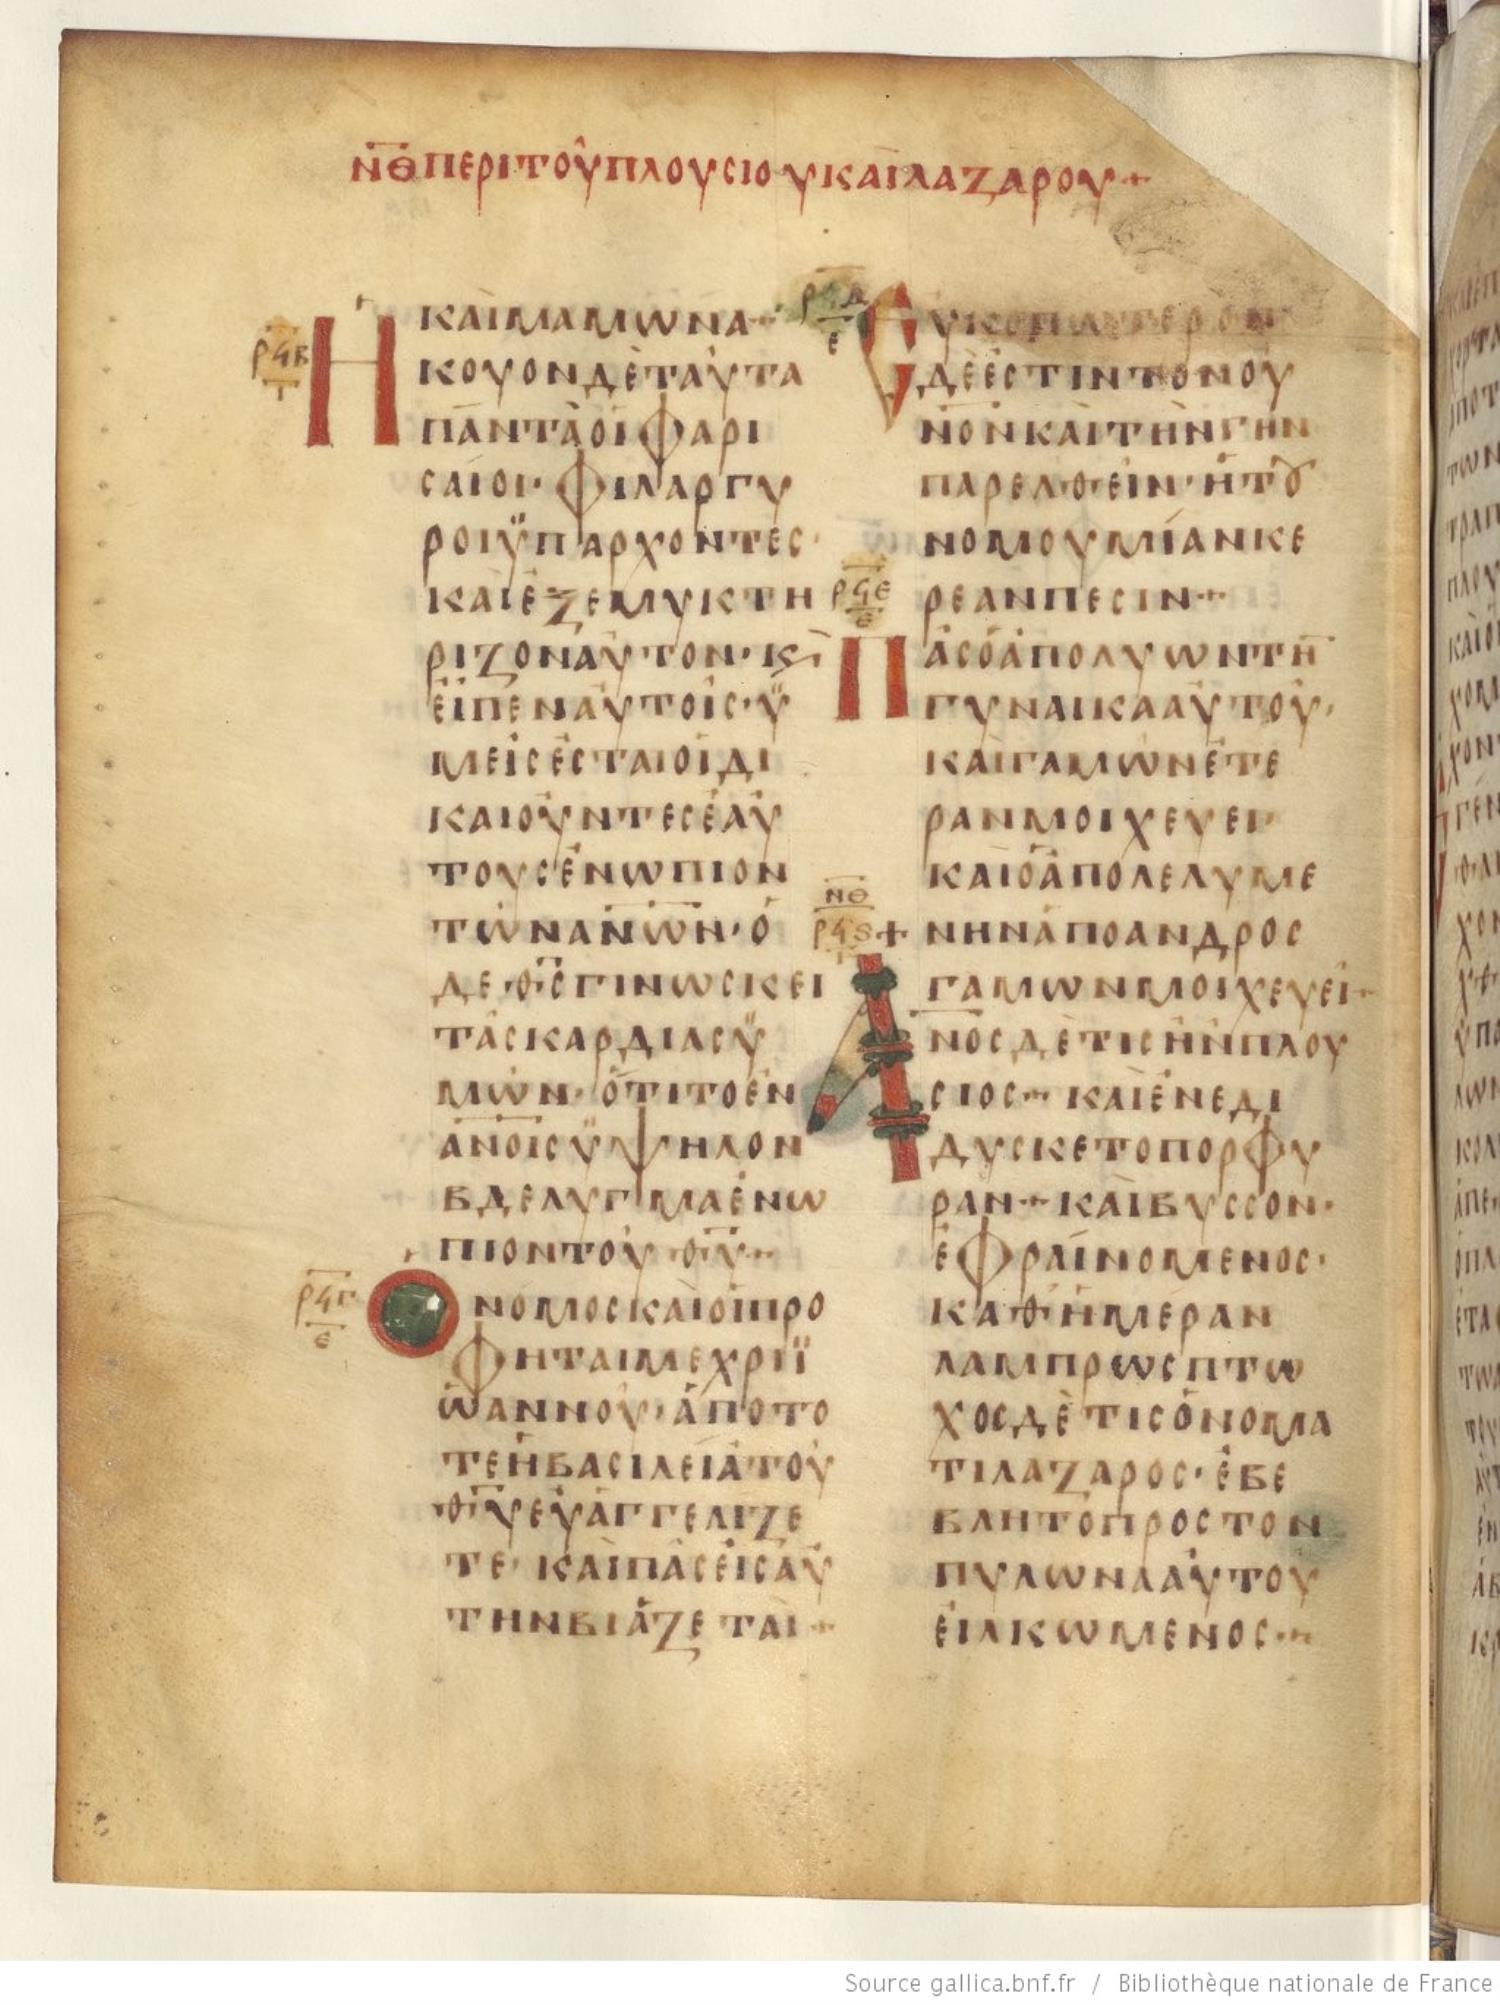 ΝΘ ΠΕΡΙ ΤΟΥ ΠΛΟΥϹΙΟΥ ΚΑΙ ΛΑΖΑΡΟΥ+
ΚΑΙ ΜΑΜΩΝΑ
ΡϞΒ
Η ΚΟΥΟΝ ΔΕ ΤΑΥΤΑ
ΠΑΝΤΑ ΟΙ ΦΑΡΙ
ϹΑΙΟΙ· ΦΙΛΑΡΓΥ
ΡΟΙ ΫΠΑΡΧΟΝΤΕϹ·
ΚΑΙ ΕΖΕΜΥΚΤΗ
ΡΙΖΟΝ ΑΥΤΟΝ· Κ̀
ΕΙΠΕΝ ΑΥΤΟΙϹ· Ϋ
ΜΕΙϹ ΕϹΤΑΙ ΟΙ ΔΙ
ΚΑΙΟΥΝΤΕϹ ΕΑΥ
ΤΟΥϹ ΕΝΩΠΙΟΝ
ΤΩΝ ΑΝΩΝ· Ο
ΔΕ ΘϹ ΓΙΝΩϹΚΕΙ
ΤΑϹ ΚΑΡΔΙΑϹ Ϋ
ΜΩΝ· ΟΤΙ ΤΟ ΕΝ
ΑΝΟΙϹ ΫΨΗΛΟΝ
ΒΔΕΛΥΓΜΑ ΕΝΩ
ΠΙΟΝ ΤΟΥ ΘΥ
ΡϞΓ
Ε
Ο ΝΟΜΟϹ ΚΑΙ ΟΙ ΠΡΟ
ΦΗΤΑΙ ΜΕΧΡΙ Ϊ
ΩΑΝΝΟΥ· ΑΠΟ ΤΟ
ΤΕ Η ΒΑϹΙΛΕΙΑ ΤΟΥ
ΘΥ ΕΥΑΓΓΕΛΙΖΕ
ΤΕ· ΚΑΙ ΠΑϹ ΕΙϹ ΑΥ
ΤΗΝ ΒΙΑΖΕΤΑΙ
ΡϞΔ
Ε
ΕΥΚΟΠΩΤΕΡΟΝ
ΔΕ ΕϹΤΙΝ ΤΟΝ ΟΥ
ΝΟΝ ΚΑΙ ΤΗΝ ΓΗΝ
ΠΑΡΕΛΘΕΙΝ· Η ΤȢ
ΝΟΜΟΥ ΜΙΑΝ ΚΕ
ΡΕΑΝ ΠΕϹΙΝ
ΡϞΕ
Ε
ΠΑϹ Ο ΑΠΟΛΥΩΝ ΤΗ̅
ΓΥΝΑΙΚΑ ΑΥΤΟΥ·
ΚΑΙ ΓΑΜΩΝ ΕΤΕ
ΡΑΝ ΜΟΙΧΕΥΕΙ·
ΚΑΙ Ο ΑΠΟΛΕΛΥΜΕ
ΝΘ
ΡϞϚ
+ ΝΗΝ ΑΠΟ ΑΝΔΡΟϹ
ΓΑΜΩΝ ΜΟΙΧΕΥΕΙ
Α ΝΟϹ ΔΕ ΤΙϹ ΗΝ ΠΛΟΥ
ϹΙΟϹ ΚΑΙ ΕΝΕΔΙ
ΔΥϹΚΕΤΟ ΠΟΡΦΥ
ΡΑΝ ΚΑΙ ΒΥϹϹΟΝ·
ΕΦΡΑΙΝΟΜΕΝΟϹ·
ΚΑΘ ΗΜΕΡΑΝ
ΛΑΜΠΡΩϹ ΠΤΩ
ΧΟϹ ΔΕ ΤΙϹ ΟΝΟΜΑ
ΤΙ ΛΑΖΑΡΟϹ· ΕΒΕ
ΒΛΗΤΟ ΠΡΟϹ ΤΟΝ
ΠΥΛΩΝΑ ΑΥΤΟΥ
ΕΙΛΚΩΜΕΝΟϹ
Source gallica.bnf.fr / Bibliothèque nationale de France